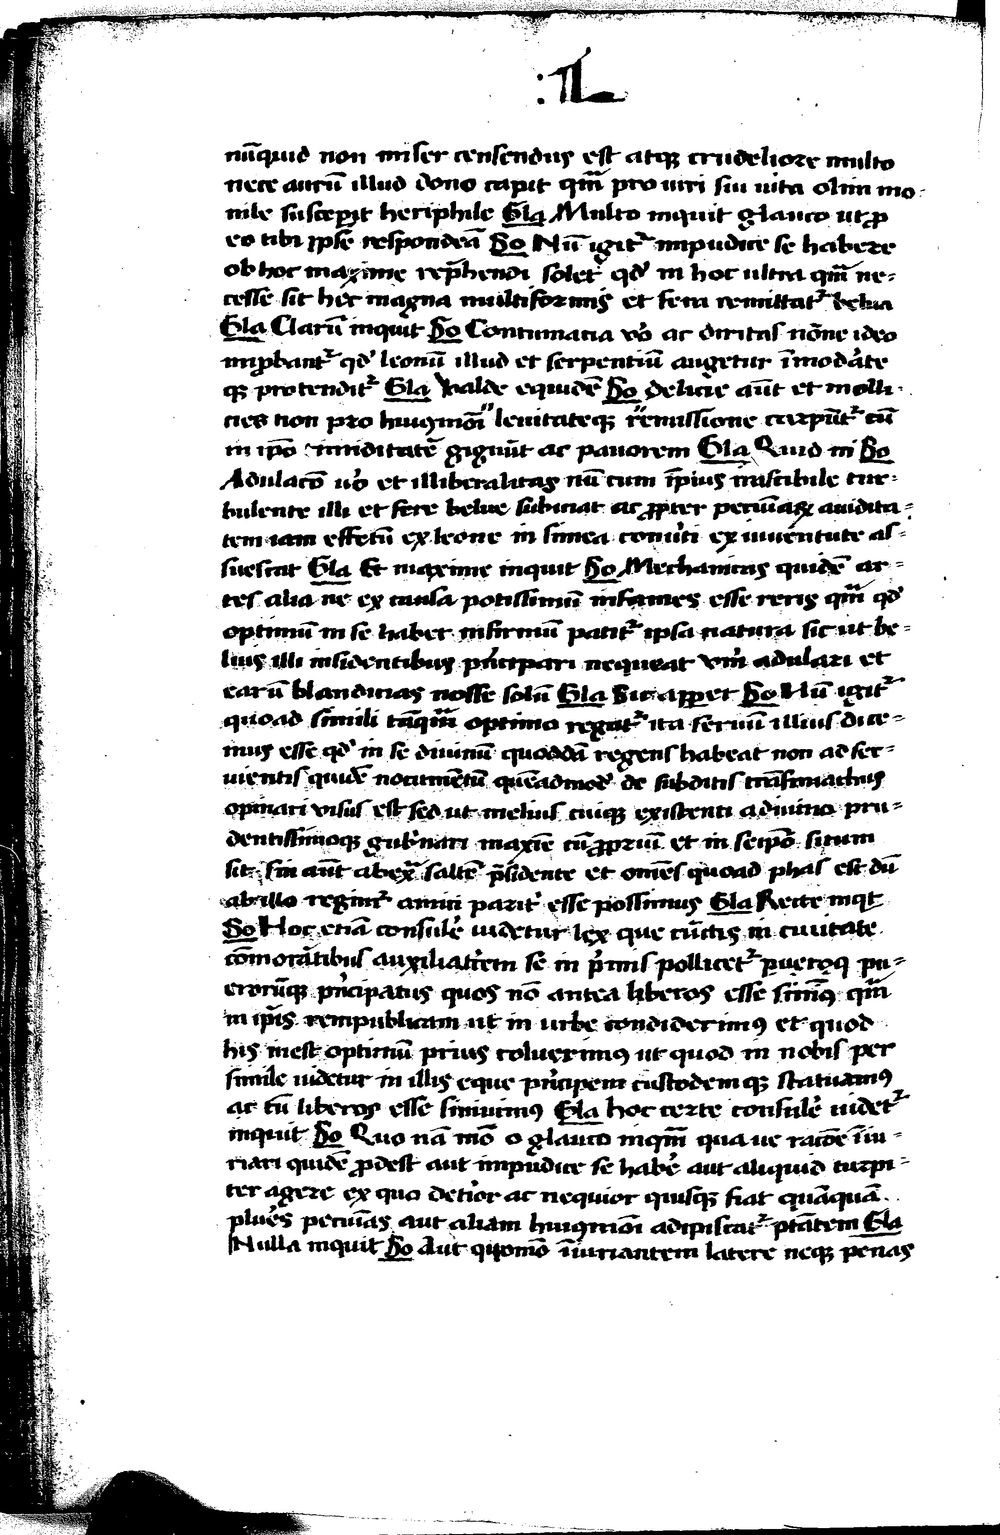 nūquid non miser censendus est atqꝫ crudeliore multo
nece aurū illud dono capit qm̄ pro uiri sui uita olim mo-
nile suscepit heriphile Gla Multo inquit glauco ut ꝓ
eo tibi ipse respondeā So Nū igitᷣ impudice se habere
ob hoc maxime rep̄hendi solet qd̓ in hoc ultra qm̄ ne-
cesse sit hec magna multiformis et fera remittatᷣ belua
Gla Clarū inquit So Contumacia u̓o ac diritas nōne ideo
improbantᷣ qd̓ leonū illud et serpentiū augetur īmodāte
qꝫ protenditᷣ Gla Valde equidē So Delicie aūt et molli-
cies non pro huiꝰmōi leuitateqꝫ remissione turpūtᷣ cū
in ip̄o timiditatē gignūt ac pauorem Gla Quid ni So
Adulacō u̓o et illiberalitas nū cum īpius irascibile tur-
bulente illi et fere belue subiciat ac ꝓpter pecuniaꝝ auidita-
tem iam effetū ex leone in simea conuerti ex iuuentute as-
suescat Gla Et maxime inquit So Mechanicas quidē ar-
tes alia ne ex causa potissimū infames esse reris qm̄ qd̓
optimū in se haber infirmū patitᷣ ipsa natura sic ut be-
luis illi insidentibus pn̓cipari nequeat uerū adulari et
earū blandicias nosse solū Gla Sic apparet So Nū igitᷣ
quoad simili tāqm̄ optimo regatᷣ ita seruū illius dice-
mus esse qd̓ in se diuinū quoddā regens habeat non ad ser-
uientis quidē nocumētū quēadmodū de subditis trāsimachus
opinari visus est sed ut melius cuiqꝫ existenti a diuino pru-
dentissimoqꝫ gubernari maxīe cū ꝓpriū et in seip̄o situm
sit sin aūt ab ex̄ saltē p̄sidente et omēs quoad phas est dū
ab illo regimᷣ amici parit̓ esse possimus Gla Recte inqt
So Hoc etiā consulē uidetur lex que cūctis in ciuitate
cōmorātibus auxiliatricem se in p̓mis pollicetᷣ puerorꝫ pu-
erorūqꝫ pn̓cipatus quos nō antea liberos esse sinimꝰ qm̄
in ip̄is rempublicam ut in urbe condiderimꝰ et quod
his inest optimū prius coluerimꝰ ut quod in nobis per
simile uidetur in illis eque pn̓cipem custodemqꝫ statuamꝰ
ac tū liberos esse sinimꝰ Gla hoc certe consulē uidetᷣ
inquit So Quo nā mō o glauco inqm̄ qua ue racōe īiu-
riari quidē ꝓdest aut impudice se habē aut aliquid turpi-
ter agere ex quo deterior ac nequior quisqꝫ fiat quāquā
plures pecunias aut aliam huiꝰmōi adipiscatᷣ ptātem Gla
Nulla inquit So Aut quomō īiuriantem latere neqꝫ penas